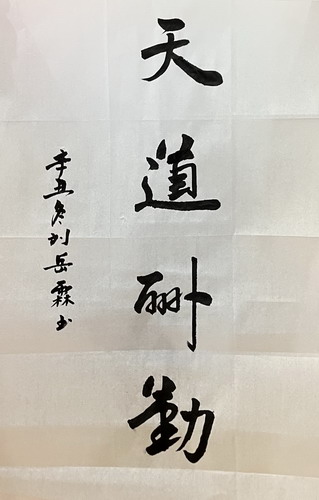 天道酬勤
辛丑冬刘岳霖书